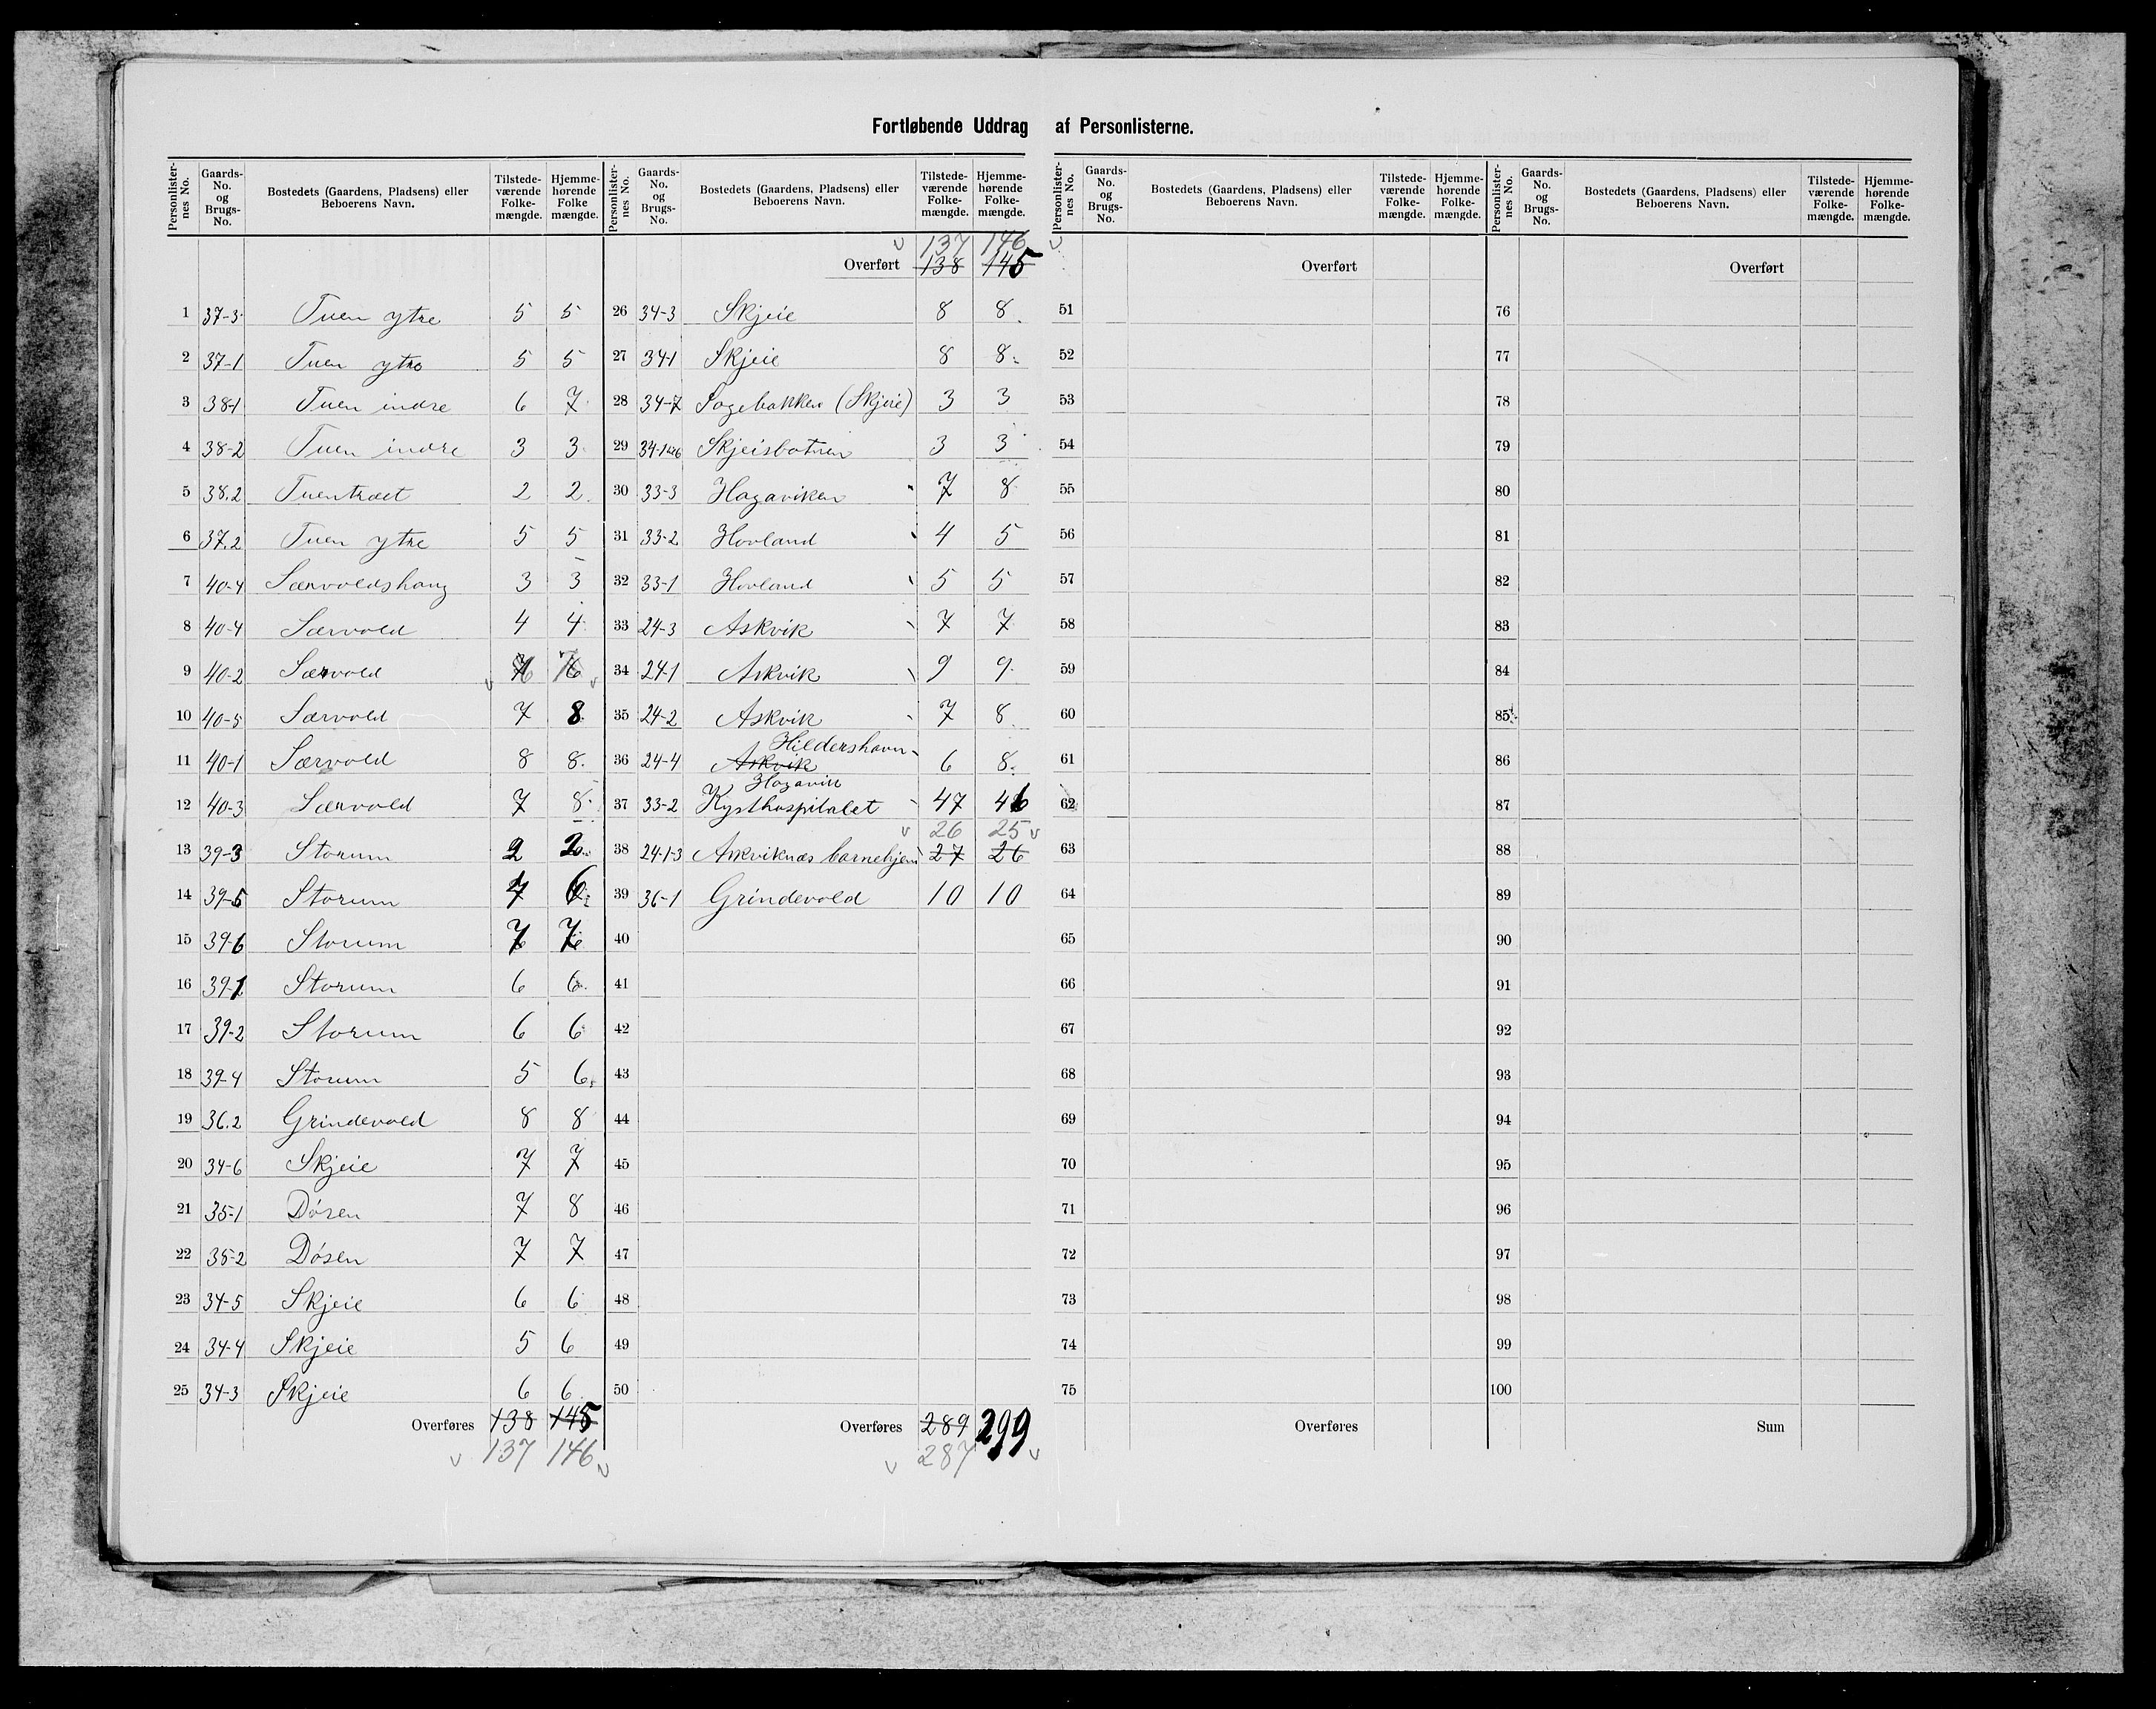 Fortløbende Uddrag af Personlisterne.
Personlisternes No. Gaards-No. og Brugs-No. Bostedets (Gaardens, Pladsens) eller Beboerens Navn. Tilstedeværende Folkemængde. Hjemmehørende Folkemængde.
1 37-3 Tuen ytre 5 5
2 37-1 Tuen ytre 5 5
3 38-1 Tuen indre 6 7
4 38-2 Tuen indre 3 3
5 38.2 Tuentræet 2 2
6 37.2 Tuen ytre 5 5
7 40-4 Særvoldshaug 3 3
8 40-4 Særvold 4 4
9 40-2 Særvold
10 40-5 Særvold 7 8
11 40-1 Særvold 8 8
12 40-3 Særvold 7 8
13 39-3 Storum 2 2
14 39-5 Storum 6
15 39-6 Storum 7 7
16 39-1 Storum 6 6
17 39-2 Storum 6 6
18 39-4 Storum 5 6
19 36.2 Grindevold 8 8
20 34-6 Skjeie 7 7
21 35-1 Døsen 7 8
22 35-2 Døsen 7 7
23 34-5 Skjeie 6 6
24 34-4 Skjeie 5 6
25 34-3 Skjeie 6 6
Overføres 138 145
137 146
Personlisternes No. Gaards-No. og Brugs-No. Bostedets (Gaardens, Pladsens) eller Beboerens Navn. Tilstedeværende Folkemængde. Hjemmehørende Folkemængde.
137 146
Overført 138 145
26 34-3 Skjeie 8 8
27 34-1 Skjeie 8 8
28 34-7 Sagebakken (Skjeie) 3 3
29 Skjeisbotnen 3 3
30 33-3 Hagaviken 7 8
31 33-2 Hovland 4 5
32 33-1 Hovland 5 5
33 24-3 Askvik 7 7
34 24-1 Askvik 9 9
35 24-2 Askvik 7 8
Hildershavn
36 24-4 Askvik 6 8
Hagavik
37 33-2 Kysthospitalet 47 46
26 25
38 24-1-3 Askviknes barnehjem 27 26
39 36-1 Grindevold 10 10
40
41
42
43
44
45
46
47
48
49
50
Overføres 289 299
287
Personlisternes No. Gaards-No. og Brugs-No. Bostedets (Gaardens, Pladsens) eller Beboerens Navn. Tilstedeværende Folkemængde. Hjemmehørende Folkemængde.
Overført
51
52
53
54
55
56
57
58
59
60
61
62
63
64
65
66
67
68
69
70
71
72
73
74
75
Overføres
Personlisternes No. Gaards-No. og Brugs-No. Bostedets (Gaardens, Pladsens) eller Beboerens Navn. Tilstedeværende Folkemængde. Hjemmehørende Folkemængde.
Overført
76
77
78
79
80
81
82
83
84
85
86
87
88
89
90
91
92
93
94
95
96
97
98
99
100
Sum